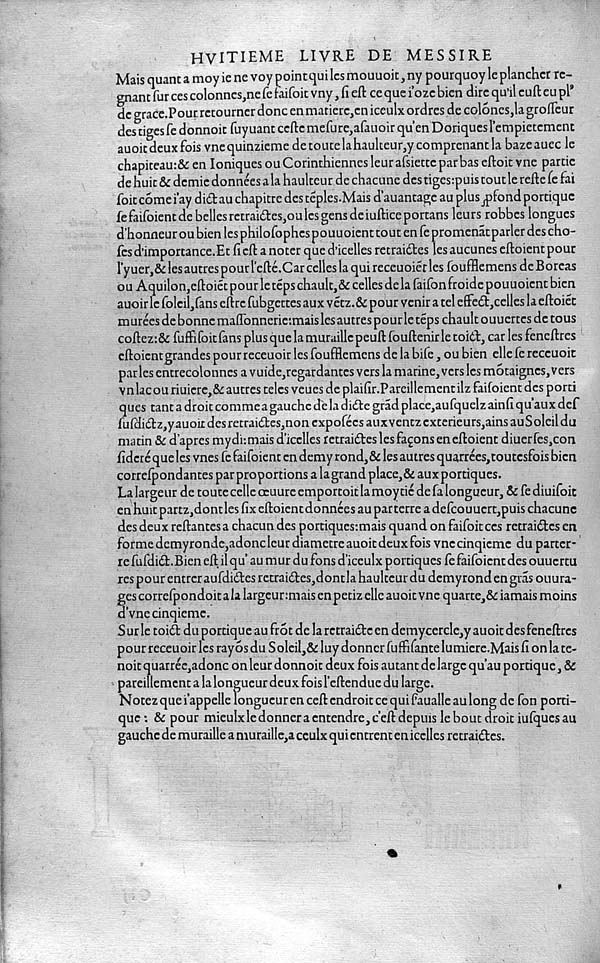 HVITIEME LIVRE DE MESSIRE
Mais quant a moy ie ne voy point qui les mouuoit, ny pourquoy le plancher re-
gnant ſur ces colonnes, ne ſe faiſoit vny, ſi eſt ce que i'oze bien dire qu'il euſt eu plꝰ
de grace. Pour retourner donc en matiere, en iceulx ordres de colōnes, la groſſeur
des tiges ſe donnoit ſuyuant ceſte meſure, aſauoir qu'en Doriques l'empietement
auoit deux fois vne quinzieme de toute la haulteur, y comprenant la baze auec le
chapiteau: & en Ioniques ou Corinthiennes leur aſsiette par bas eſtoit vne partie
de huit & demie données a la haulteur de chacune des tiges: puis tout le reſte ſe fai
ſoit cōme i'ay dict au chapitre des tēples. Mais d'auantage au plus ꝓfond portique
ſe faiſoient de belles retraictes, ou les gens de iuſtice portans leurs robbes longues
d'honneur ou bien les philoſophes pouuoient tout en ſe promenāt parler des cho-
ſes d'importance. Et ſi eſt a noter que d'icelles retraictes les aucunes eſtoient pour
l'yuer, & les autres pour l'eſté. Car celles la qui receuoiēt les ſoufflemens de Boreas
ou Aquilon, eſtoiēt pour le tēps chault, & celles de la ſaiſon froide pouuoient bien
auoir le ſoleil, ſans eſtre ſubgettes aux vētz. & pour venir a tel effect, celles la eſtoiēt
murées de bonne maſſonnerie: mais les autres pour le tēps chault ouuertes de tous
coſtez: & ſuffiſoit ſans plus que la muraille peuſt ſouſtenir le toict, car les feneſtres
eſtoient grandes pour receuoir les ſoufflemens de la biſe, ou bien elle ſe receuoit
par les entrecolonnes a vuide, regardantes vers la marine, vers les mōtaignes, vers
vn lac ou riuiere, & autres teles veues de plaiſir. Pareillement ilz faiſoient des porti
ques tant a droit comme a gauche de la dicte grād place, auſquelz ainſi qu'aux deſ
ſuſdictz, y auoit des retraictes, non expoſées aux ventz exterieurs, ains au Soleil du
matin & d'apres mydi: mais d'icelles retraictes les façons en eſtoient diuerſes, con
ſideré que les vnes ſe faiſoient en demy rond, & les autres quarrées, toutesfois bien
correſpondantes par proportions a la grand place, & aux portiques.
La largeur de toute celle œuure emportoit la moytié de ſa longueur, & ſe diuiſoit
en huit partz, dont les ſix eſtoient données au parterre a deſcouuert, puis chacune
des deux reſtantes a chacun des portiques: mais quand on faiſoit ces retraictes en
forme demyronde, adonc leur diametre auoit deux fois vne cinqieme du parter-
re ſuſdict. Bien eſt il qu' au mur du fons d'iceulx portiques ſe faiſoient des ouuertu
res pour entrer auſdictes retraictes, dont la haulteur du demyrond en grās ouura-
ges correſpondoit a la largeur: mais en petiz elle auoit vne quarte, & iamais moins
d'vne cinqieme.
Sur le toict du portique au frōt de la retraicte en demycercle, y auoit des feneſtres
pour receuoir les rayōs du Soleil, & luy donner ſuffiſante lumiere. Mais ſi on la te-
noit quarrée, adonc on leur donnoit deux fois autant de large qu'au portique, &
pareillement a la longueur deux fois l'eſtendue du large.
Notez que i'appelle longueur en ceſt endroit ce qui s'aualle au long de ſon porti-
que: & pour mieulx le donner a entendre, c'eſt depuis le bout droit iuſques au
gauche de muraille a muraille, a ceulx qui entrent en icelles retraictes.